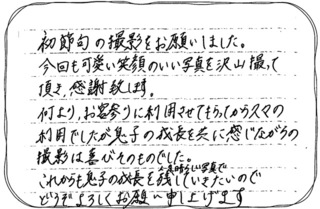 初節句の撮影をお願いしました。
今回も可愛い笑顔のいい写真を沢山撮って
頂き、感謝致します。
何より、お宮参りに利用させてもらってから久々の
利用でしたが息子の成長を共に感じながらの
撮影は喜びそのものでした。
これからも息子の成長を素晴らしい写真で
残していきたいので
どうぞよろしくお願い申し上げます